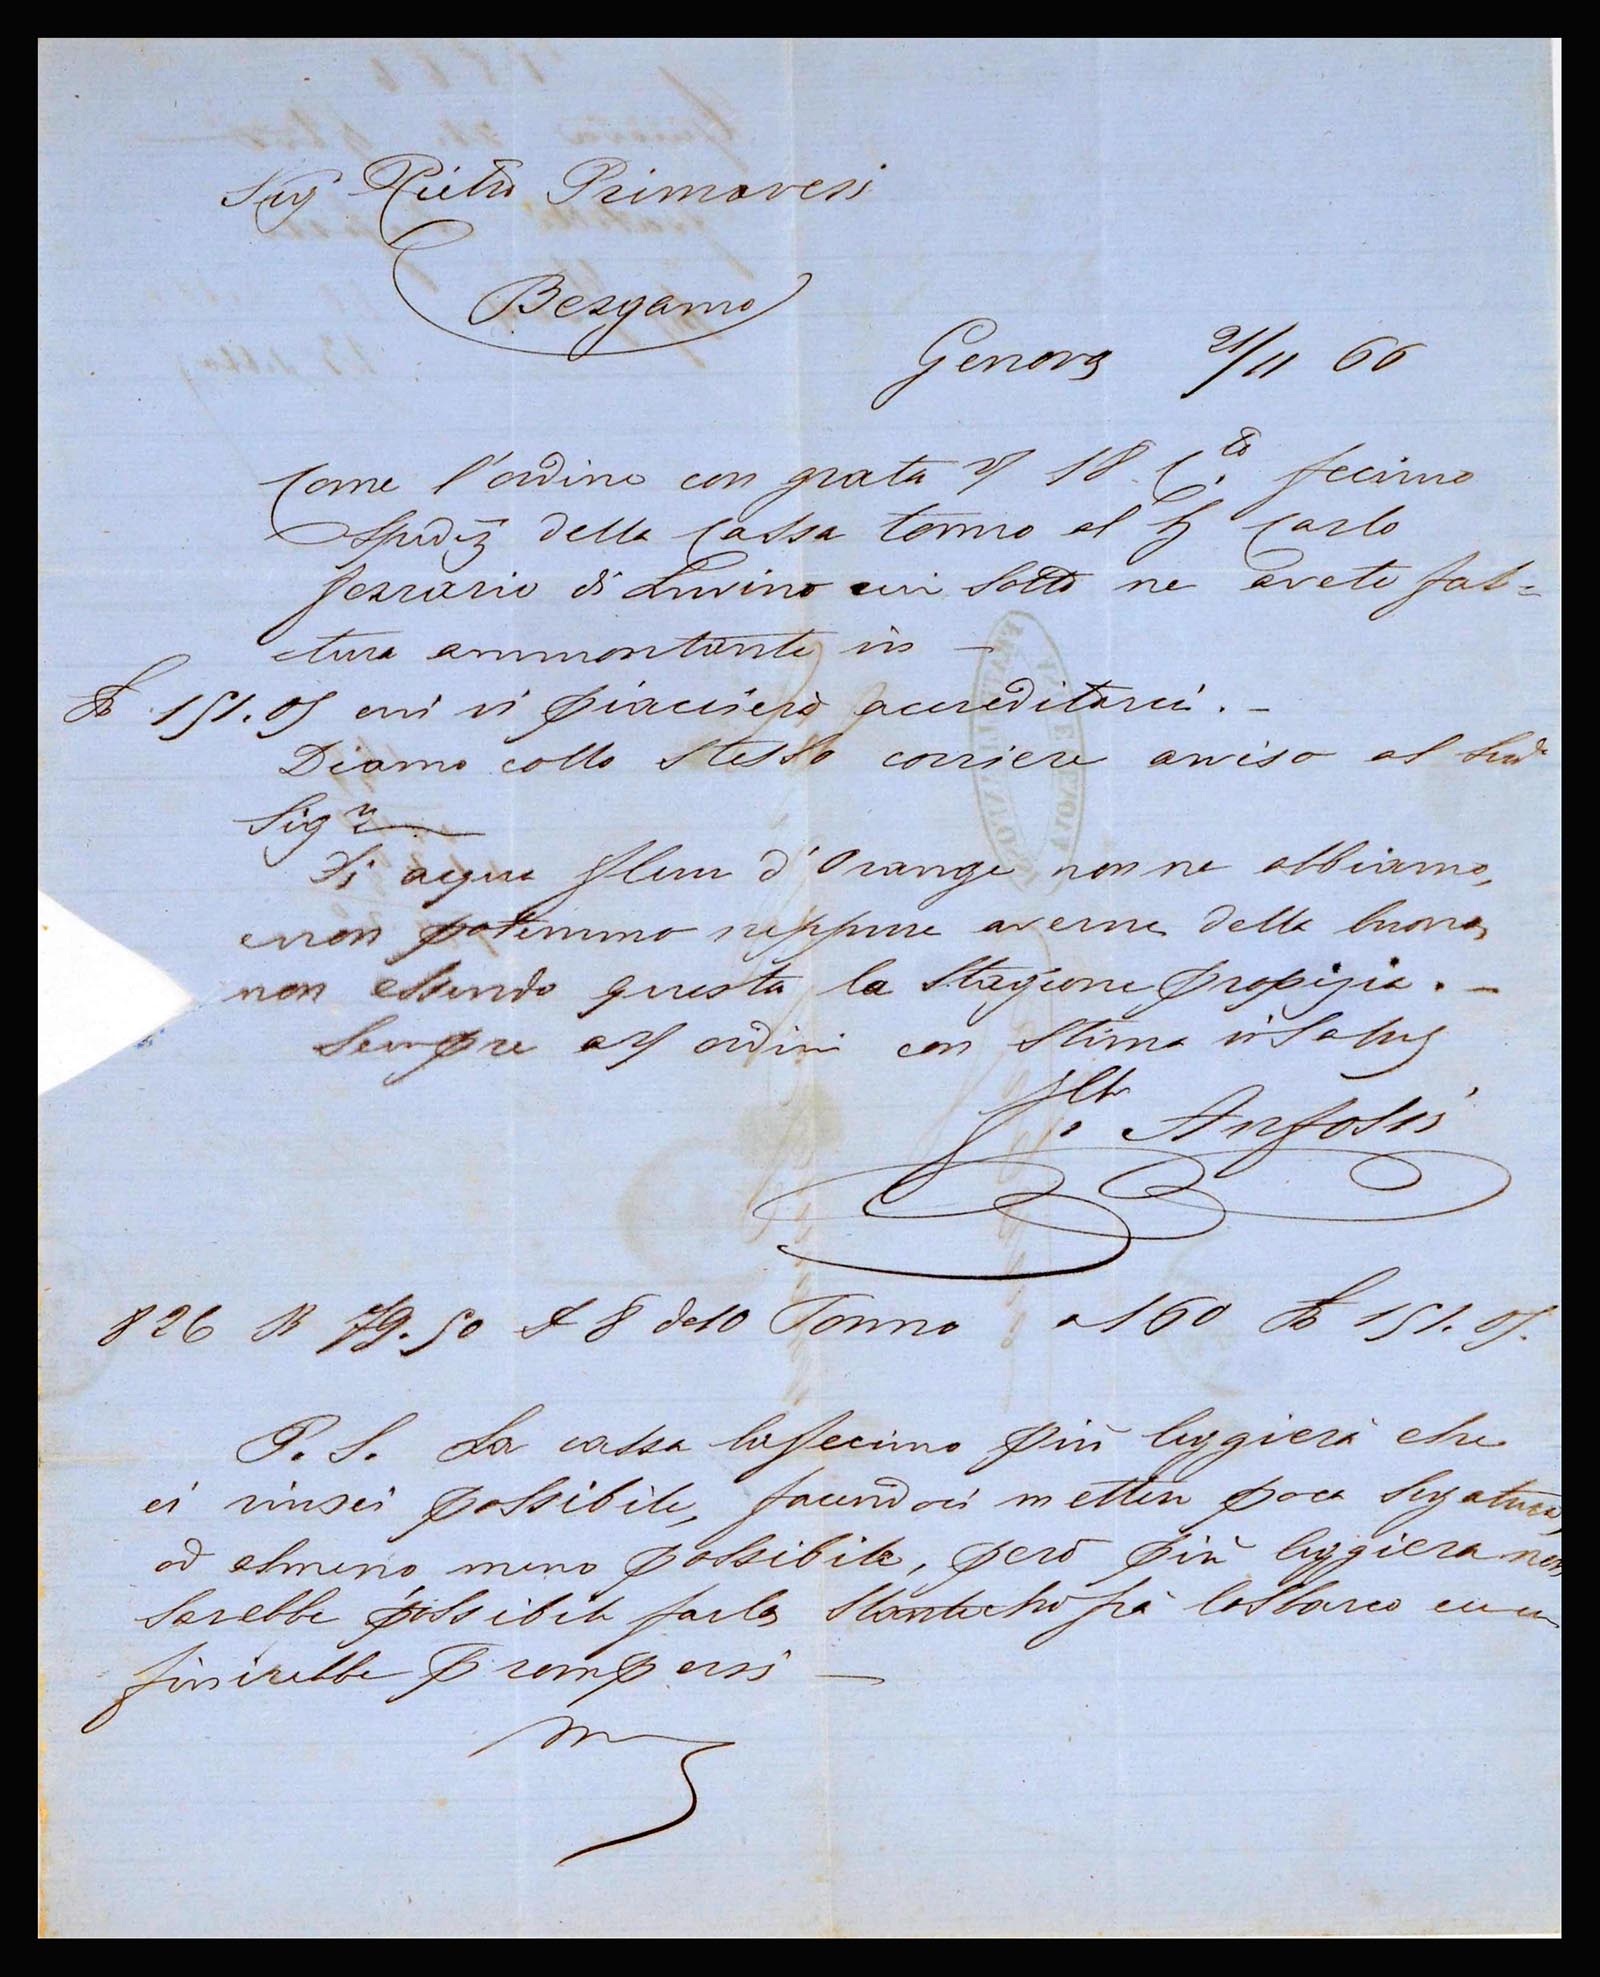 Sig Pietro Primavesi
Bergamo
Genova 21/11 66
Come l'ordine con grata 18 C.to fecimo
Spediz della Cassa tonno al Sg Carlo
Ferrario di Luvino cui sotto ne avete fat=
tura ammontante in —
151.05 cui vi piacierà accreditarci. —
Diamo collo stesso corriere avviso al Sud.
Sigr
Di acqua fleur d'Orange non ne abbiamo,
e non potemmo neppure averne della buona
non essendo questa la stagione propizia. —
Sempre a ordini con stima vi
Flli Anfossi
826 B 79.50 8 de 10 Tonno a 160 151.05.
P. S. La cassa la fecimo più leggiera che
ci riuscì possibile, facendoci mettere poca segatura,
od almeno meno possibile, però più leggiera non
sarebbe possibile farla stante che
finirebbe rompersi —